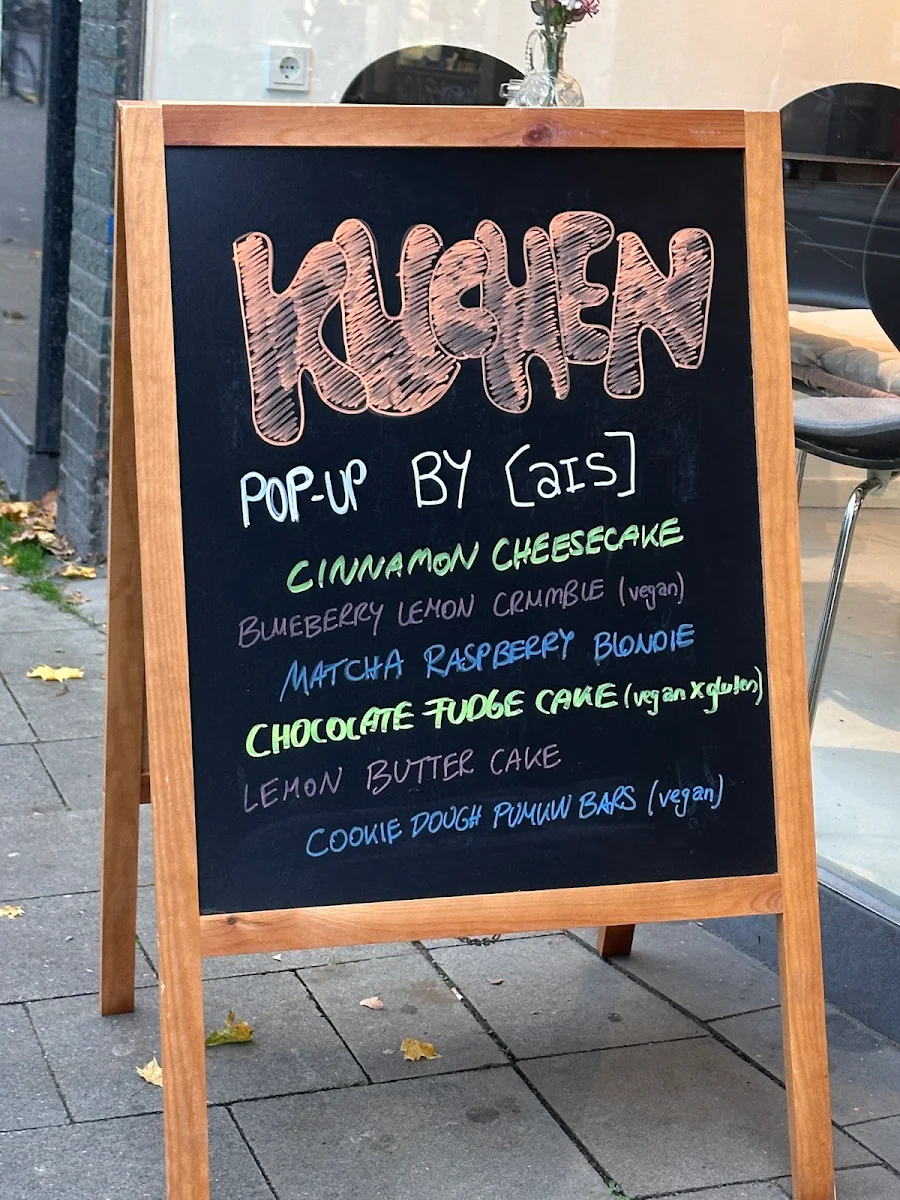 KUCHEN
POP-UP BY [aIS]
CINNAMON CHEESECAKE
BLUEBERRY LEMON CRUMBLE (vegan)
MATCHA RASPBERRY BLONDIE
CHOCOLATE FUDGE CAKE (vegan x gluten)
LEMON BUTTER CAKE
COOKIE DOUGH BARS (vegan)